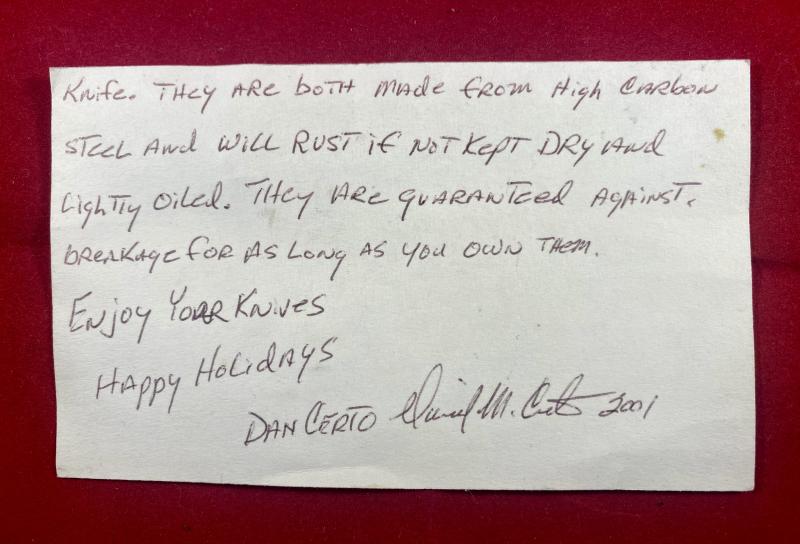 Knife. They are both made from High Carbon
Steel and will Rust if not kept Dry and
Lightly oiled. They are guaranteed against.
breakage for as long as you own them.
Enjoy Your Knives
Happy Holidays
Dan Certo Daniel M. Certo 2001